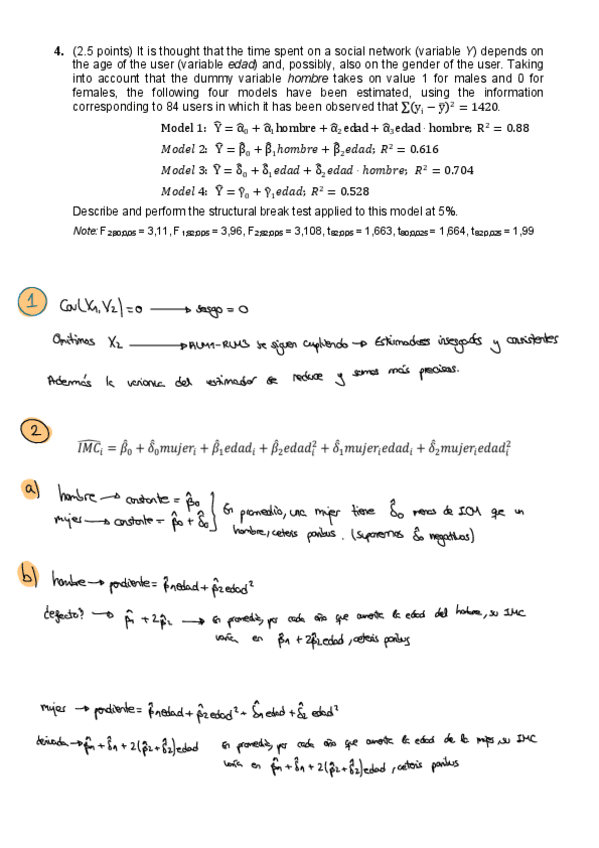 4. (2.5 points) It is thought that the time spent on a social network (variable Y) depends on
the age of the user (variable edad) and, possibly, also on the gender of the user. Taking
into account that the dummy variable hombre takes on value 1 for males and 0 for
females, the following four models have been estimated, using the information
corresponding to 84 users in which it has been observed that ∑(yᵢ − ȳ)² = 1420.
Model 1: Ŷ = α̂₀ + α̂₁hombre + α̂₂edad + α̂₃edad · hombre; R² = 0.88
Model 2: Ŷ = β̂₀ + β̂₁hombre + β̂₂edad; R² = 0.616
Model 3: Ŷ = δ̂₀ + δ̂₁edad + δ̂₂edad · hombre; R² = 0.704
Model 4: Ŷ = γ̂₀ + γ̂₁edad; R² = 0.528
Describe and perform the structural break test applied to this model at 5%.
Note: F₂;₈₀;₀,₀₅ = 3,11, F ₁;₈₂;₀,₀₅ = 3,96, F₂;₈₂;₀,₀₅ = 3,108, t₈₂;₀,₀₅ = 1,663, t₈₀;₀,₀₂₅ = 1,664, t₈₂;₀,₀₂₅ = 1,99
1 Cov(X₁, V₂) = 0 → sesgo = 0
Omitimos X₂ → RLM1-RLM3 se siguen cumpliendo → Estimadores insesgados y consistentes
Además la varianza del estimador se reduce y somos más precisos.
2
IMĈᵢ = β̂₀ + δ̂₀mujerᵢ + β̂₁edadᵢ + β̂₂edadᵢ² + δ̂₁mujerᵢedadᵢ + δ̂₂mujerᵢedadᵢ²
a) hombre → constante = β̂₀ } En promedio, una mujer tiene δ̂₀ menos de ICM que un
mujer → constante = β̂₀ + δ̂₀ hombre, ceteris paribus. (suponemos δ̂₀ negativas)
b) hombre → pendiente = β̂₁edad + β̂₂edad²
¿efecto? → β̂₁ + 2β̂₂ → En promedio, por cada año que aumente la edad del hombre, su IMC
varía en β̂₁ + 2β̂₂edad, ceteris paribus
mujer → pendiente = β̂₁edad + β̂₂edad² + δ̂₁edad + δ̂₂ edad²
derivada → β̂₁ + δ̂₁ + 2(β̂₂+δ̂₂)edad En promedio, por cada año que aumente la edad de la mujer, su IMC
varía en β̂₁ + δ̂₁ + 2(β̂₂+δ̂₂)edad, ceteris paribus